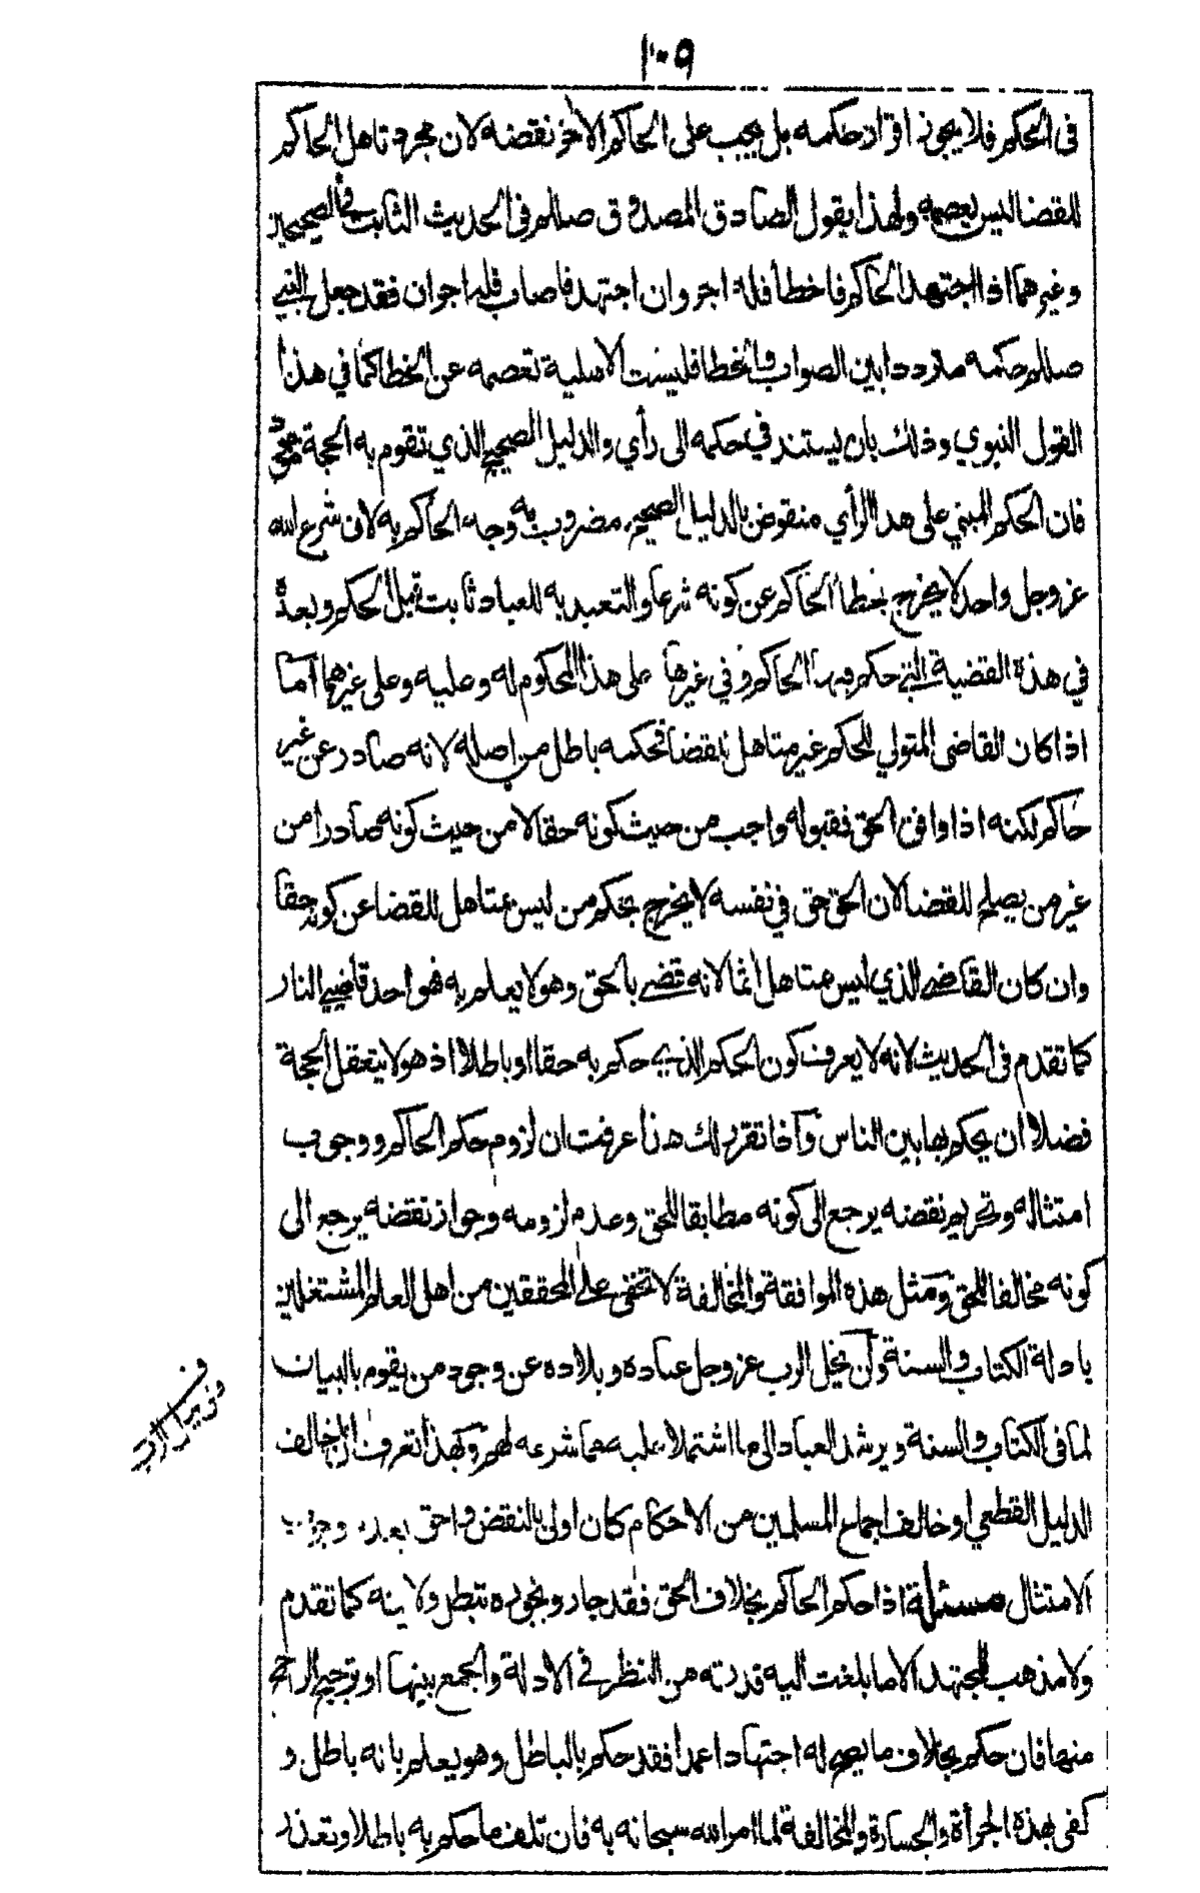 ١٠٩
في الحكم فلا يجوز اقرار حكمه بل يجب على الحاكم الآخر نقضه لان مجرد تاهل الحاكم
للقضا ليس بعصمة ولهذا يقول الصادق المصدوق صللم في الحديث الثابت في الصحيحين
وغيرهما اذا اجتهد الحاكم فاخطأ فله اجر وان اجتهد فاصاب فله اجران فقد جعل النبي
صللم حكمه مترددا بين الصواب والخطا فليست الاهلية تعصمه عن الخطا كما في هذا
القول النبوي وذلك بان يستند في حكمه الى رأي والدليل الصحيح الذي تقوم به الحجة موجود
فان الحكم المبني على هذا الرأي منقوض بالدليل الصحيح مضروب به وجه الحاكم به لان شرع الله
عز وجل واحد لا يخرج بخطأ الحاكم عن كونه شرعا والتعبد به للعباد ثابت قبل الحكم وبعده
في هذه القضية التي حكم فيها الحاكم وفي غيرها على هذا المحكوم له وعليه وعلى غيرهما أما
اذا كان القاضي المتولي للحكم غير متاهل للقضا فحكمه باطل من اصله لانه صادر عن غير
حاكم لكنه اذا وافق الحق فقبوله واجب من حيث كونه حقا لا من حيث كونه صادرا من
غير من يصلح للقضا لان الحق حق في نفسه لا يخرج بحكم من ليس بمتاهل للقضا عن كونه حقا
وان كان القاضي الذي ليس متاهل اثما لانه قضى بالحق وهو لا يعلم به فهو احد قاضيي النار
كما تقدم في الحديث لانه لا يعرف كون الحكم الذي حكم به حقا او باطلا اذ هو لا يتعقل الحجة
فضلا ان يحكم بها بين الناس وآذا تقرر لك هذا عرفت ان لزوم حكم الحاكم ووجوب
امتثاله وتحريم نقضه يرجع الى كونه مطابقا للحق وعدم لزومه وجواز نقضه يرجع الى
كونه مخالفا للحق ومثل هذه الموافقة والمخالفة لا تخفى على المحققين من اهل العلم المشتغلين
بادلة الكتاب والسنة ولن يخل الرب عز وجل عباده وبلاده عن وجود من يقوم بالبيان
لما في الكتاب والسنة ويرشد العباد الى ما اشتملا عليه مما شرعه لهم وبهذا تعرف ان ما خالف
الدليل القطعي او خالف اجماع المسلمين من الاحكام كان اولى بالنقض واحق بعدم وجوب
الامتثال مسئلة اذا حكم الحاكم بخلاف الحق فقد جار وبجوره تبطل ولايته كما تقدم
ولا مذهب للمجتهد الا ما بلغت اليه قدرته من النظر في الادلة والجمع بينها او ترجيح الراجح
منها فان حكم بخلاف ما يصح له اجتهادا عمدا فقد حكم بالباطل وهو يعلم بانه باطل و
كفى بهذه الجرأة والجسارة والمخالفة لما امر الله سبحانه به فان تلف ما حكم به باطلا وتعذر